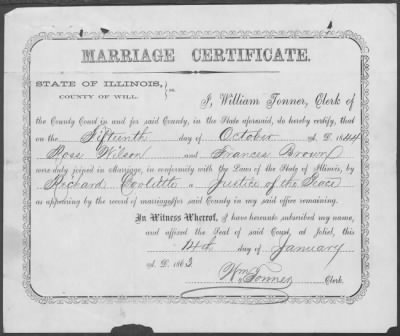 MARRIAGE CERTIFICATE.
STATE OF ILLINOIS, } ss.
COUNTY OF WILL.
I, William Tonner, Clerk of
the County Court in and for said County, in the State aforesaid, do hereby certify, that
on the Fifteenth day of October A. D. 1844
Ross Wilson and Frances Brown
were duly joined in Marriage, in conformity with the Laws of the State of Illinois, by
Richard a Justice of the Peace
as appearing by the record of marriages for said County in my said office remaining.
In Witness Whereof, I have hereunto subscribed my name,
and affixed the Seal of said Court, at Joliet, this
14th day of January
A. D. 1863
Wm Tonner Clerk.